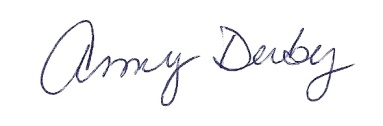 Amy Derby